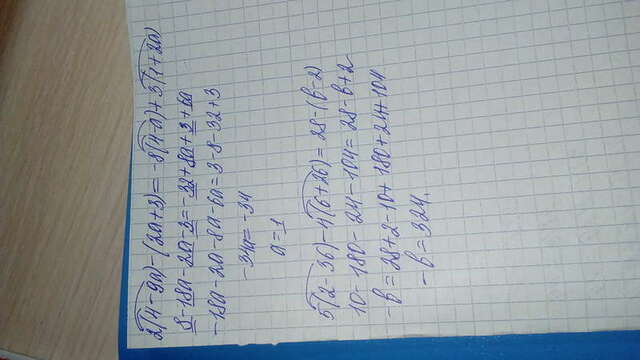 2(4-9a)-(2a+3)=-8(4-a)+3(1+2a)
8-18a-2a-3=-32+8a+3+6a
-18a-2a-8a-6a=3-8-32+3
-34a=-34
a=1
5(2-36)-4(6+26)=28-(b-2)
10-180-24-104=28-b+2
-b=28+2-10+180+24+104
-b=324.